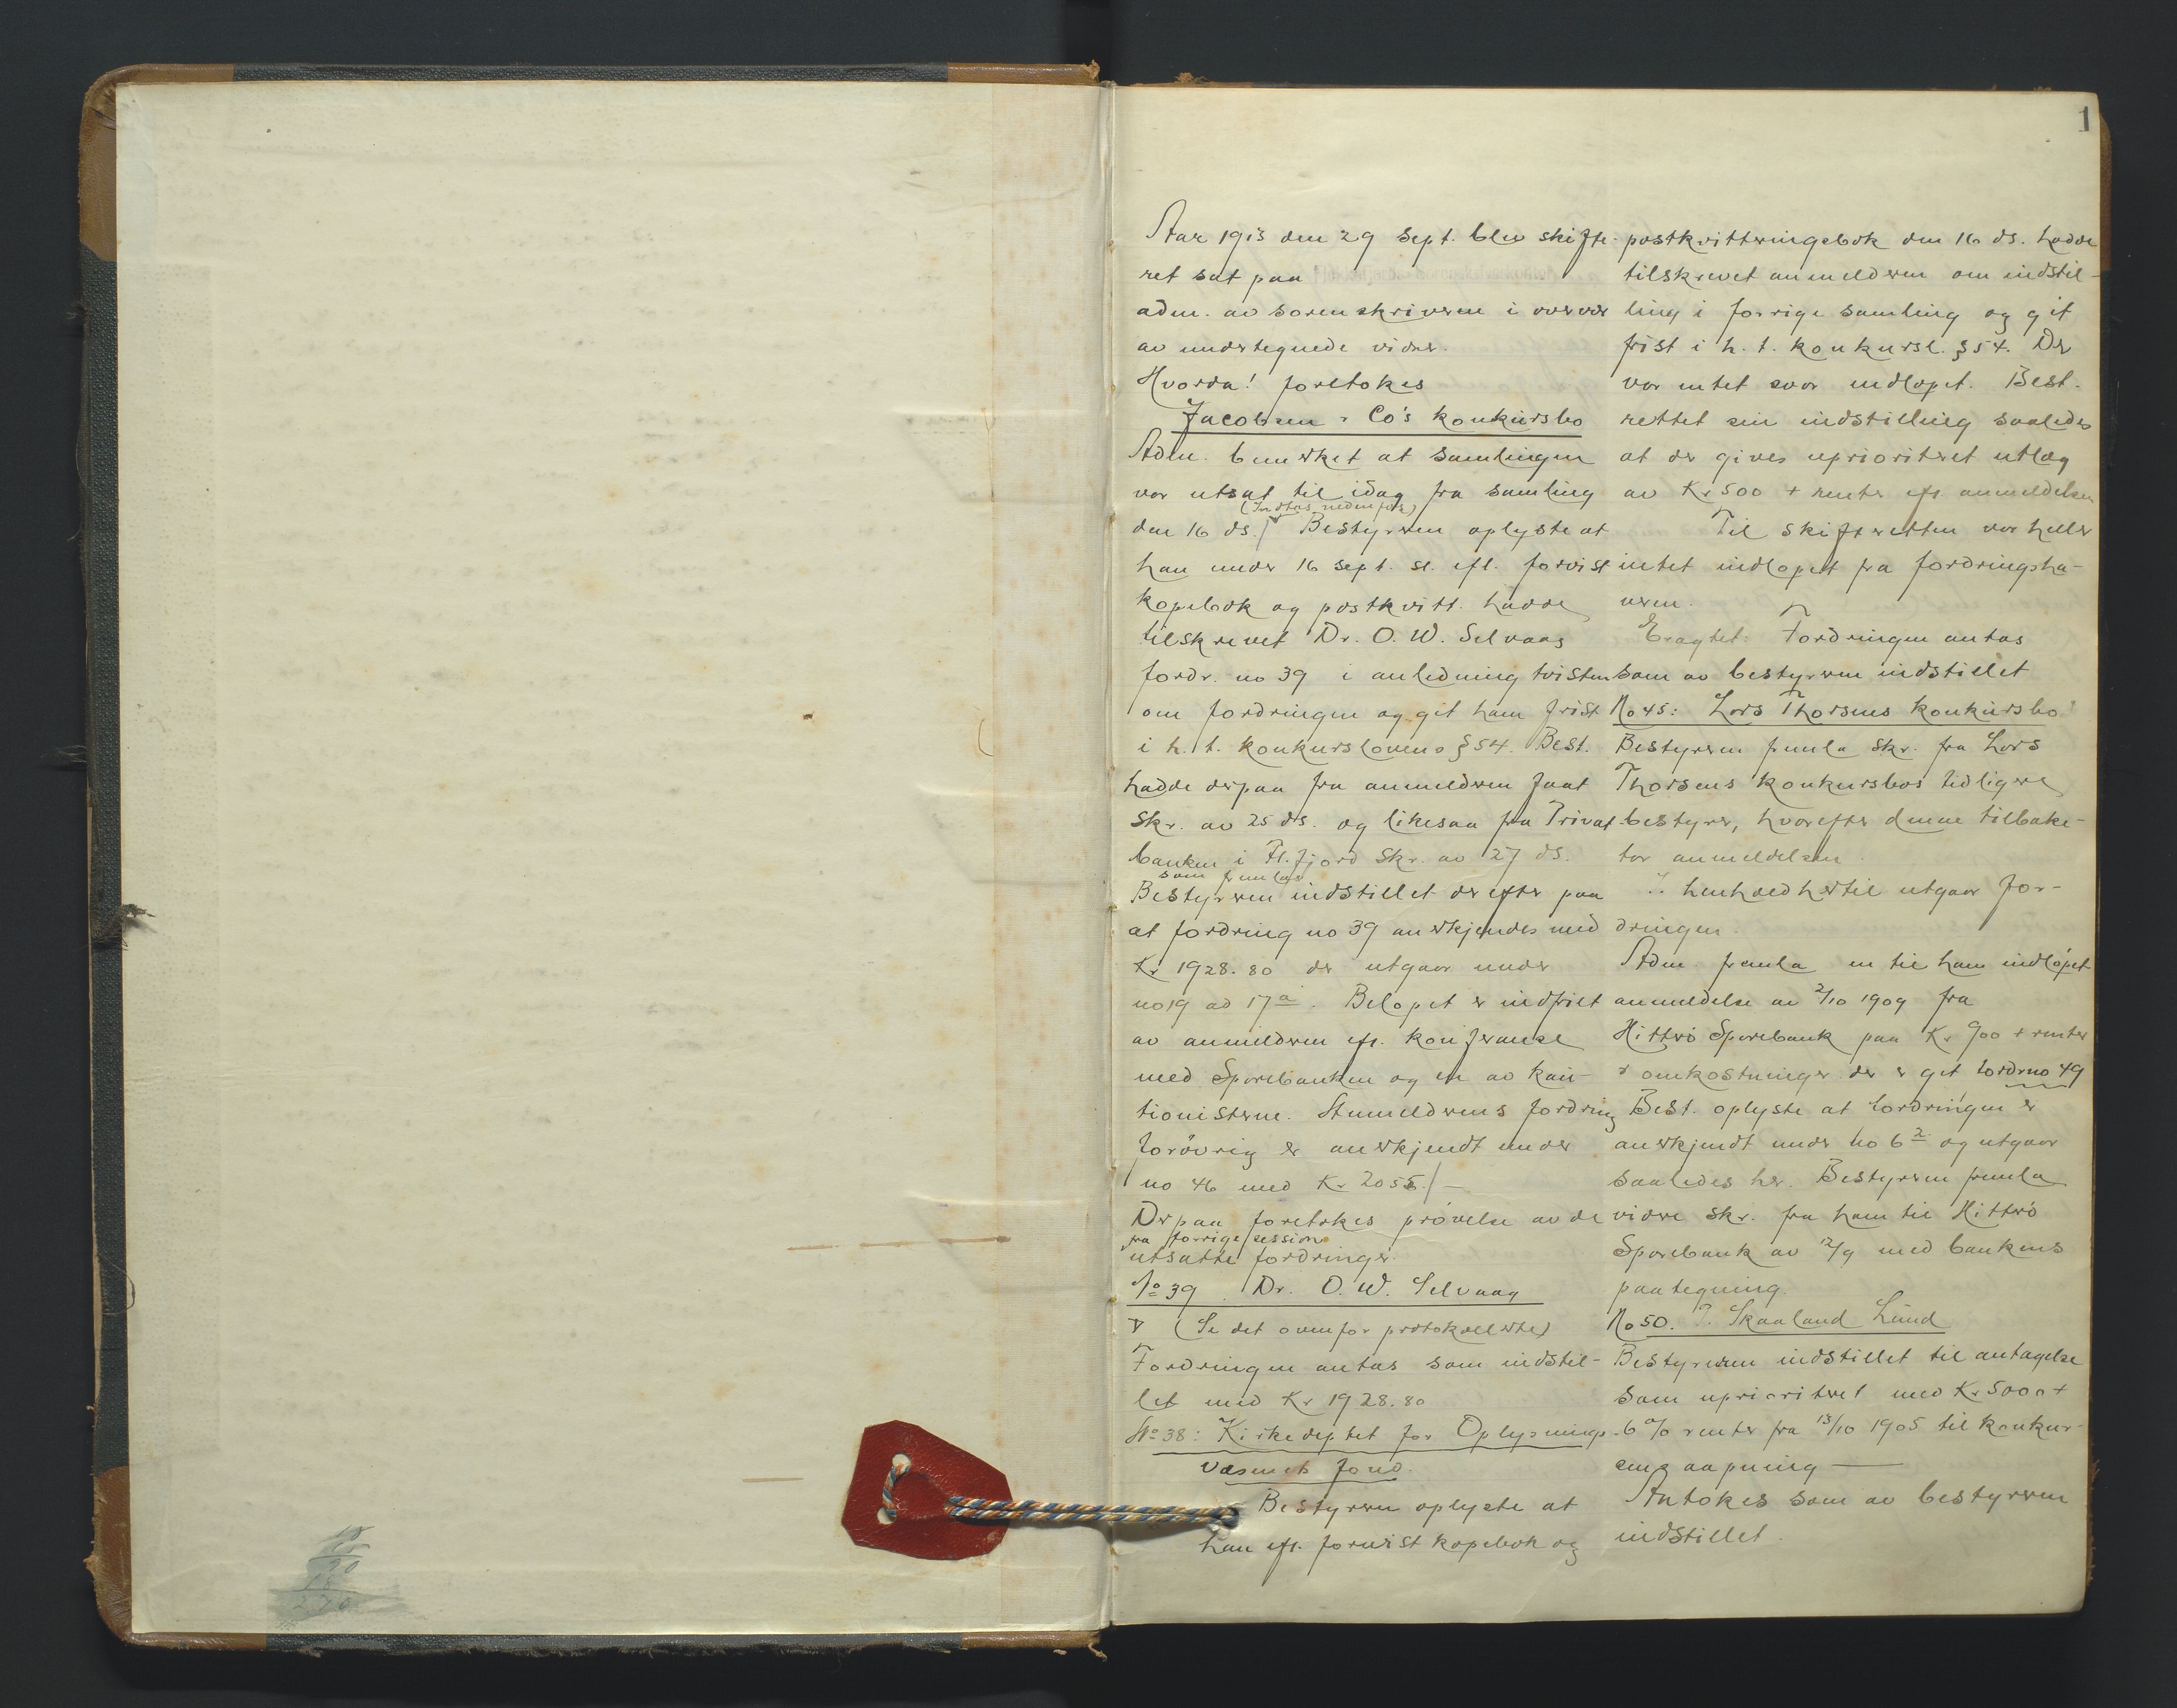 1
Aar 1913 den 29 Sept. blev skifte-
ret sat paa
adm. av sorenskriveren i overvær
av undertegnede vidner.
Hvorda! foretokes
Jacobsen & Co's konkursbo
Adm. bemerket at samlingen
var utsat til idag fra samling
(Indtas nedenfor)
den 16 ds./ Bestyreren oplyste at
han under 16 sept. sl. efl. forvist
kopebok og postkvitt. hadde
tilskrevet Dr. O. W. Selvaag
fordr. no 39 i anledning tvisten
om fordringen og git ham frist
i h. t. konkurslovens § 54. Best.
hadde derpaa fra anmelderen faat
Skr. av 25 ds. og likesaa fra Privat-
banken i Fl.fjord Skr. av 27 ds.
som fremlaes
Bestyreren indstillet derefter paa
at fordring no 39 anerkjendes med
Kr 1928.80 der utgaar under
no 19 ad 17a. Beløpet er indfriet
av anmelderen eft. konferanse
med Sparebanken og en av kau-
tionisterne. Anmelderens fordring
forøvrig er anerkjendt under
no 46 med Kr 2055./-
Derpaa foretokes prøvelse av de
fra forrige session
utsatte fordringer.
No 39. Dr. O. W. Selvaag
(Se det ovenfor protokollerte)
Fordringen antas som indstil-
let med Kr 1928.80
No 38: Kirkedeptet for Oplysnings-
væsnets fond.
Bestyreren oplyste at
han eft. forevist kopebok og
postkvitteringsbok den 16 ds. hadde
tilskrevet anmelderen om indstil-
ling i forrige samling og git
frist i h. t. konkursl. § 54. Der
var intet svar indløpet. Best.
rettet sin indstilling saaledes
at der gives uprioritert utlæg
av Kr 500 + renter eft. anmeldelsen
Til skifteretten var heller
intet indløpet fra fordringsha-
veren.
Eragtet: Fordringen antas
som av bestyreren indstillet
No 45: Lars Thorsens konkursbo
Bestyreren fremla Skr. fra Lars
Thorsens konkursbos tidligere
bestyrer, hvorefter denne tilbake-
tar anmeldelsen.
I henhold hertil utgaar for-
dringen.
Adm. fremla en til ham indløpet
anmeldelse av 2/10 1909 fra
Hitterø Sparebank paa Kr 900 + renter
& omkostninger der er git fordr no 49
Best. oplyste at fordringen er
anerkjendt under no 6 2 og utgaar
saaledes her. Bestyreren fremla
videre Skr. fra ham til Hitterø
Sparebank av 12/9 med bankens
paategning.
No 50. T. Skaaland Lund
Bestyreren indstillet til antagelse
som uprioritert med Kr 5000 +
6 % renter fra 13/10 1905 til konkur-
sens aapning —
Antokes som av bestyreren
indstillet.
18
90
18
270